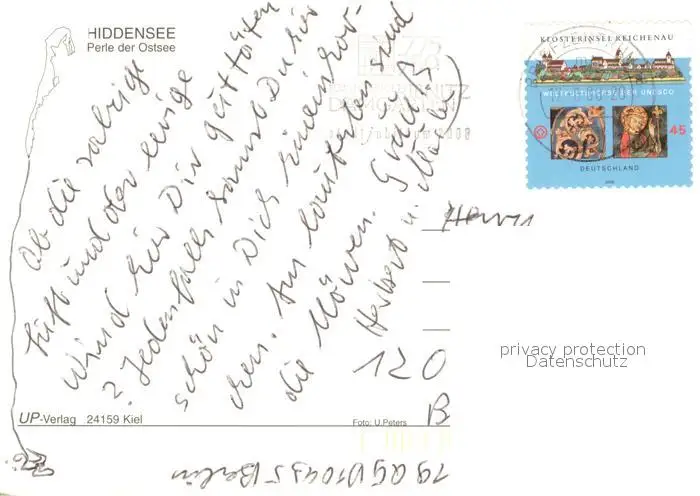 HIDDENSEE
Perle der Ostsee
Ob die salzige
Luft und der ewige
Wind für Dir guttäten
? Jedenfalls kannst Du hier
schön in Dich hineinhor-
chen. Am lautesten sind
die Möwen. Gruß
Herbert u.
UP-Verlag 24159 Kiel
Foto: U.Peters
KLOSTERINSEL REICHENAU
WELTKULTURERBE DER UNESCO
45
DEUTSCHLAND
2008
Herrn
privacy protection
Datenschutz
120
B
Berlin